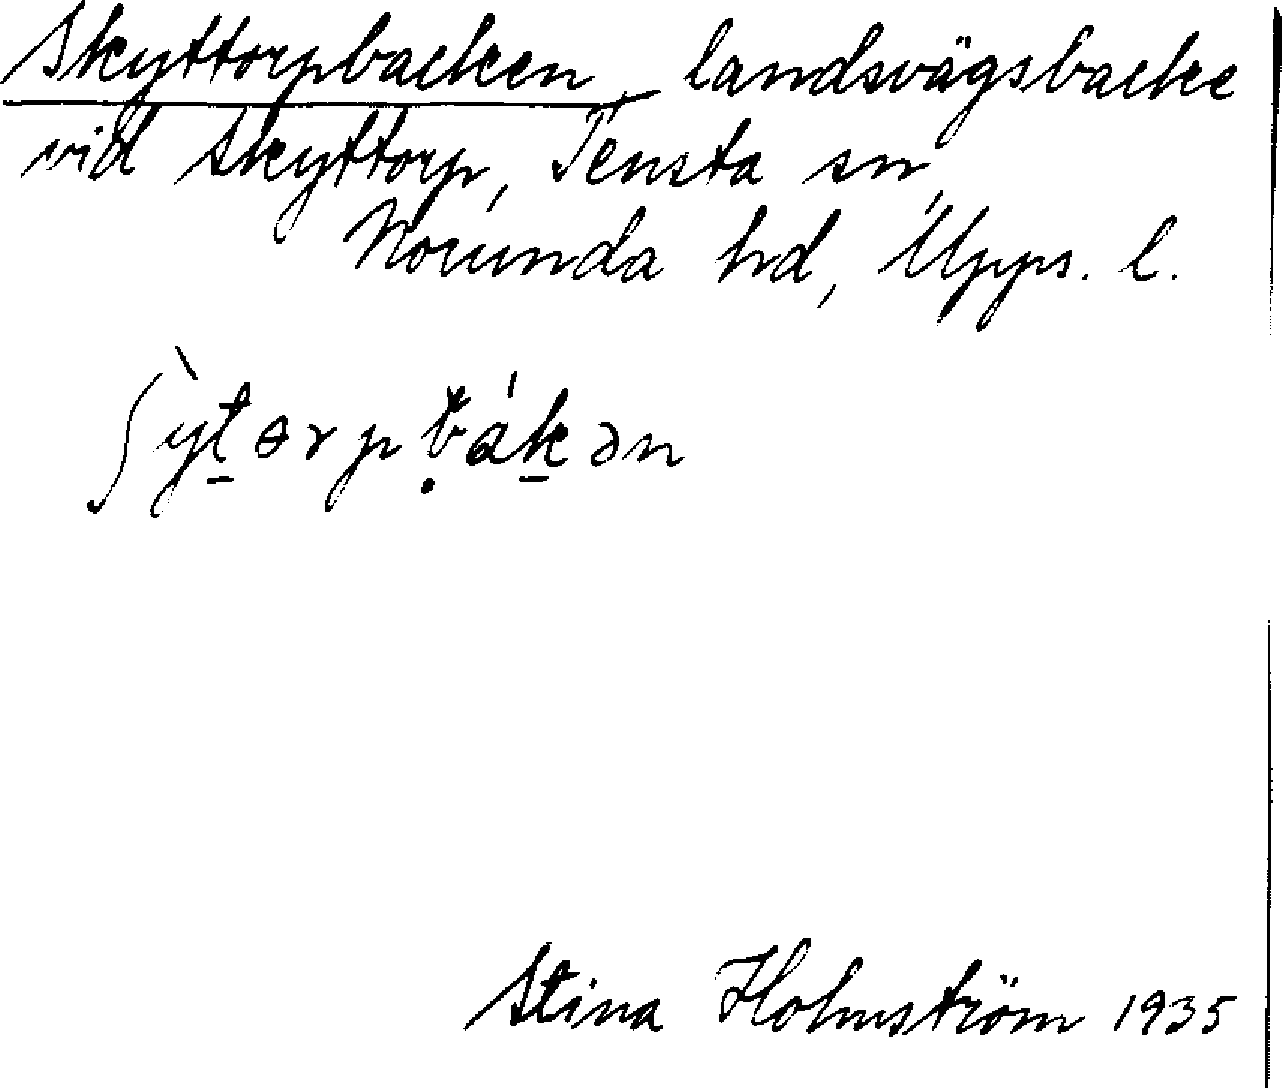 Skyttorpbacken, landsvägsbacke
vid Skyttorp, Tensta sn,
Norunda hd, Upps. l.
ʃỳt̠ɵrpb̥ák̠ən
Stina Holmström 1935